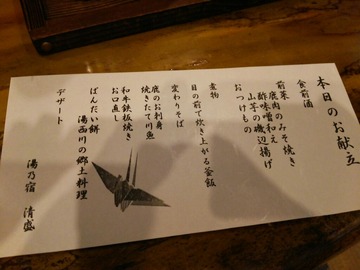 本日のお献立
食前酒
前菜 鹿肉のみそ焼き
酢味噌和え
山芋の磯辺揚げ
おつけもの
煮物
目の前で炊き上がる釜飯
変わりそば
鹿のお刺身
焼きたて川魚
和牛鉄板焼き
お口直し
ばんだい餅
湯西川の郷土料理
デザート
湯乃宿 清盛